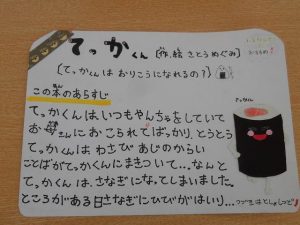 てっかくん〔作.絵 さとうめぐみ〕
〔てっかくんは おりこうになれるの？〕
この本のあらすじ
てっかくんは、いつもやんちゃをしていて
お母さんにおこられてばっかり、とうとう
てっかくんは わさび あじの からい
ことばがてっかくんにまきついて…なんと
てっかくんは、さなぎになってしまいました。
ところがある日さなぎにひびがはいり…
てっかくん
つづきはとしょしつで♪